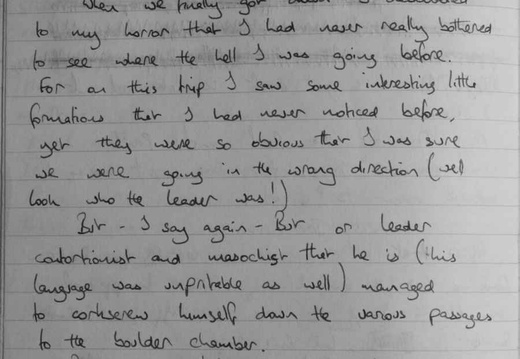 When we finally got down I discovered
to my horror that I had never really bothered
to see where the hell I was going before.
For on this trip I saw some interesting little
formations that I had never noticed before,
yet they were so obvious that I was sure
we were going in the wrong direction (well
look who the leader was!)
But - I say again - But or leader
contortionist and masochist that he is (this
language was unprintable as well) managed
to corkscrew himself down the various passages
to the boulder chamber.